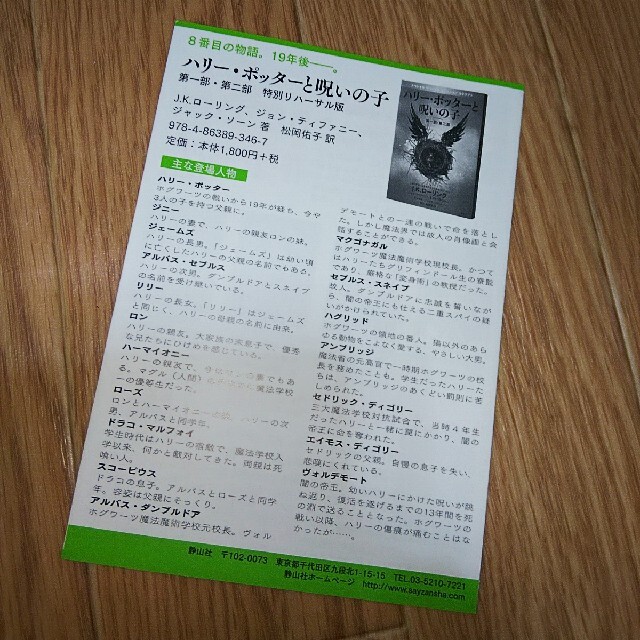 8番目の物語。19年後——。
ハリー・ポッターと呪いの子
第一部・第二部 特別リハーサル版
J.K.ローリング、ジョン・ティファニー、
ジャック・ソーン 著 松岡佑子 訳
978-4-86389-346-7
定価:本体1,800円+税
主な登場人物
ハリー・ポッター
ホグワーツの戦いから19年が経ち、今や
3人の子を持つ父親に。
ジニー
ハリーの妻で、ハリーの親友ロンの妹。
ジェームズ
ハリーの長男。「ジェームズ」は幼い頃
に亡くしたハリーの父親の名前でもある。
アルバス・セブルス
ハリーの次男。ダンブルドアとスネイプ
の名前を受け継いでいる。
リリー
ハリーの長女。「リリー」はジェームズ
と同じく、ハリーの母親の名前に由来。
ロン
ハリーの親友。大家族の末息子で、優秀
な兄たちにひけめを感じている。
ハーマイオニー
ハリーの親友で、
ロンの妻でもあ
る。マグル(人間)
魔法学校
一の優等生だった。
ローズ
ロンとハーマイオニーの
ハリーの次
男、アルバスと同学年。
ドラコ・マルフォイ
学生時代はハリーの宿敵で、魔法学校入
学以来、何かと敵対してきた。両親は死
喰い人。
スコーピウス
ドラコの息子。アルバスとローズと同学
年。容姿は父親にそっくり。
アルバス・ダンブルドア
ホグワーツ魔法魔術学校元校長。ヴォル
デモートとの一連の戦いで命を落とし
た。しかし魔法界では故人の肖像画と会
話することができる。
マクゴナガル
ホグワーツ魔法魔術学校現校長。かつて
はハリーたちグリフィンドール生の寮監
であり、厳格な「変身術」の教授だった。
セブルス・スネイプ
故人。ダンブルドアに忠誠を誓いなが
ら、闇の帝王にも仕える二重スパイの疑
いがかけられていた。
ハグリッド
ホグワーツの領地の番人。猫以外のあら
ゆる動物をこよなく愛する、やさしい大男。
アンブリッジ
魔法省の元高官で一時期ホグワーツの校
長を務めたことも。学生だったハリーた
ちは、アンブリッジのあくどい罰則に苦
しめられた。
セドリック・ディゴリー
三大魔法学校対抗試合で、当時4年生
だったハリーと一緒に罠にかかり、闇の
帝王に命を奪われた。
エイモス・ディゴリー
セドリックの父親。自慢の息子を失い、
悲嘆にくれている。
ヴォルデモート
闇の帝王。幼いハリーにかけた呪いが跳
ね返り、復活を遂げるまでの13年間を死
の淵で送ることとなった。ホグワーツの
戦い以降、ハリーの傷痕が痛むことはな
かったが……。
ハリー・ポッターと
呪いの子
J.K.ローリング
静山社 〒102-0073 東京都千代田区九段北1-15-15 TEL.03-5210-7221
静山社ホームページ http://www.sayzansha.com